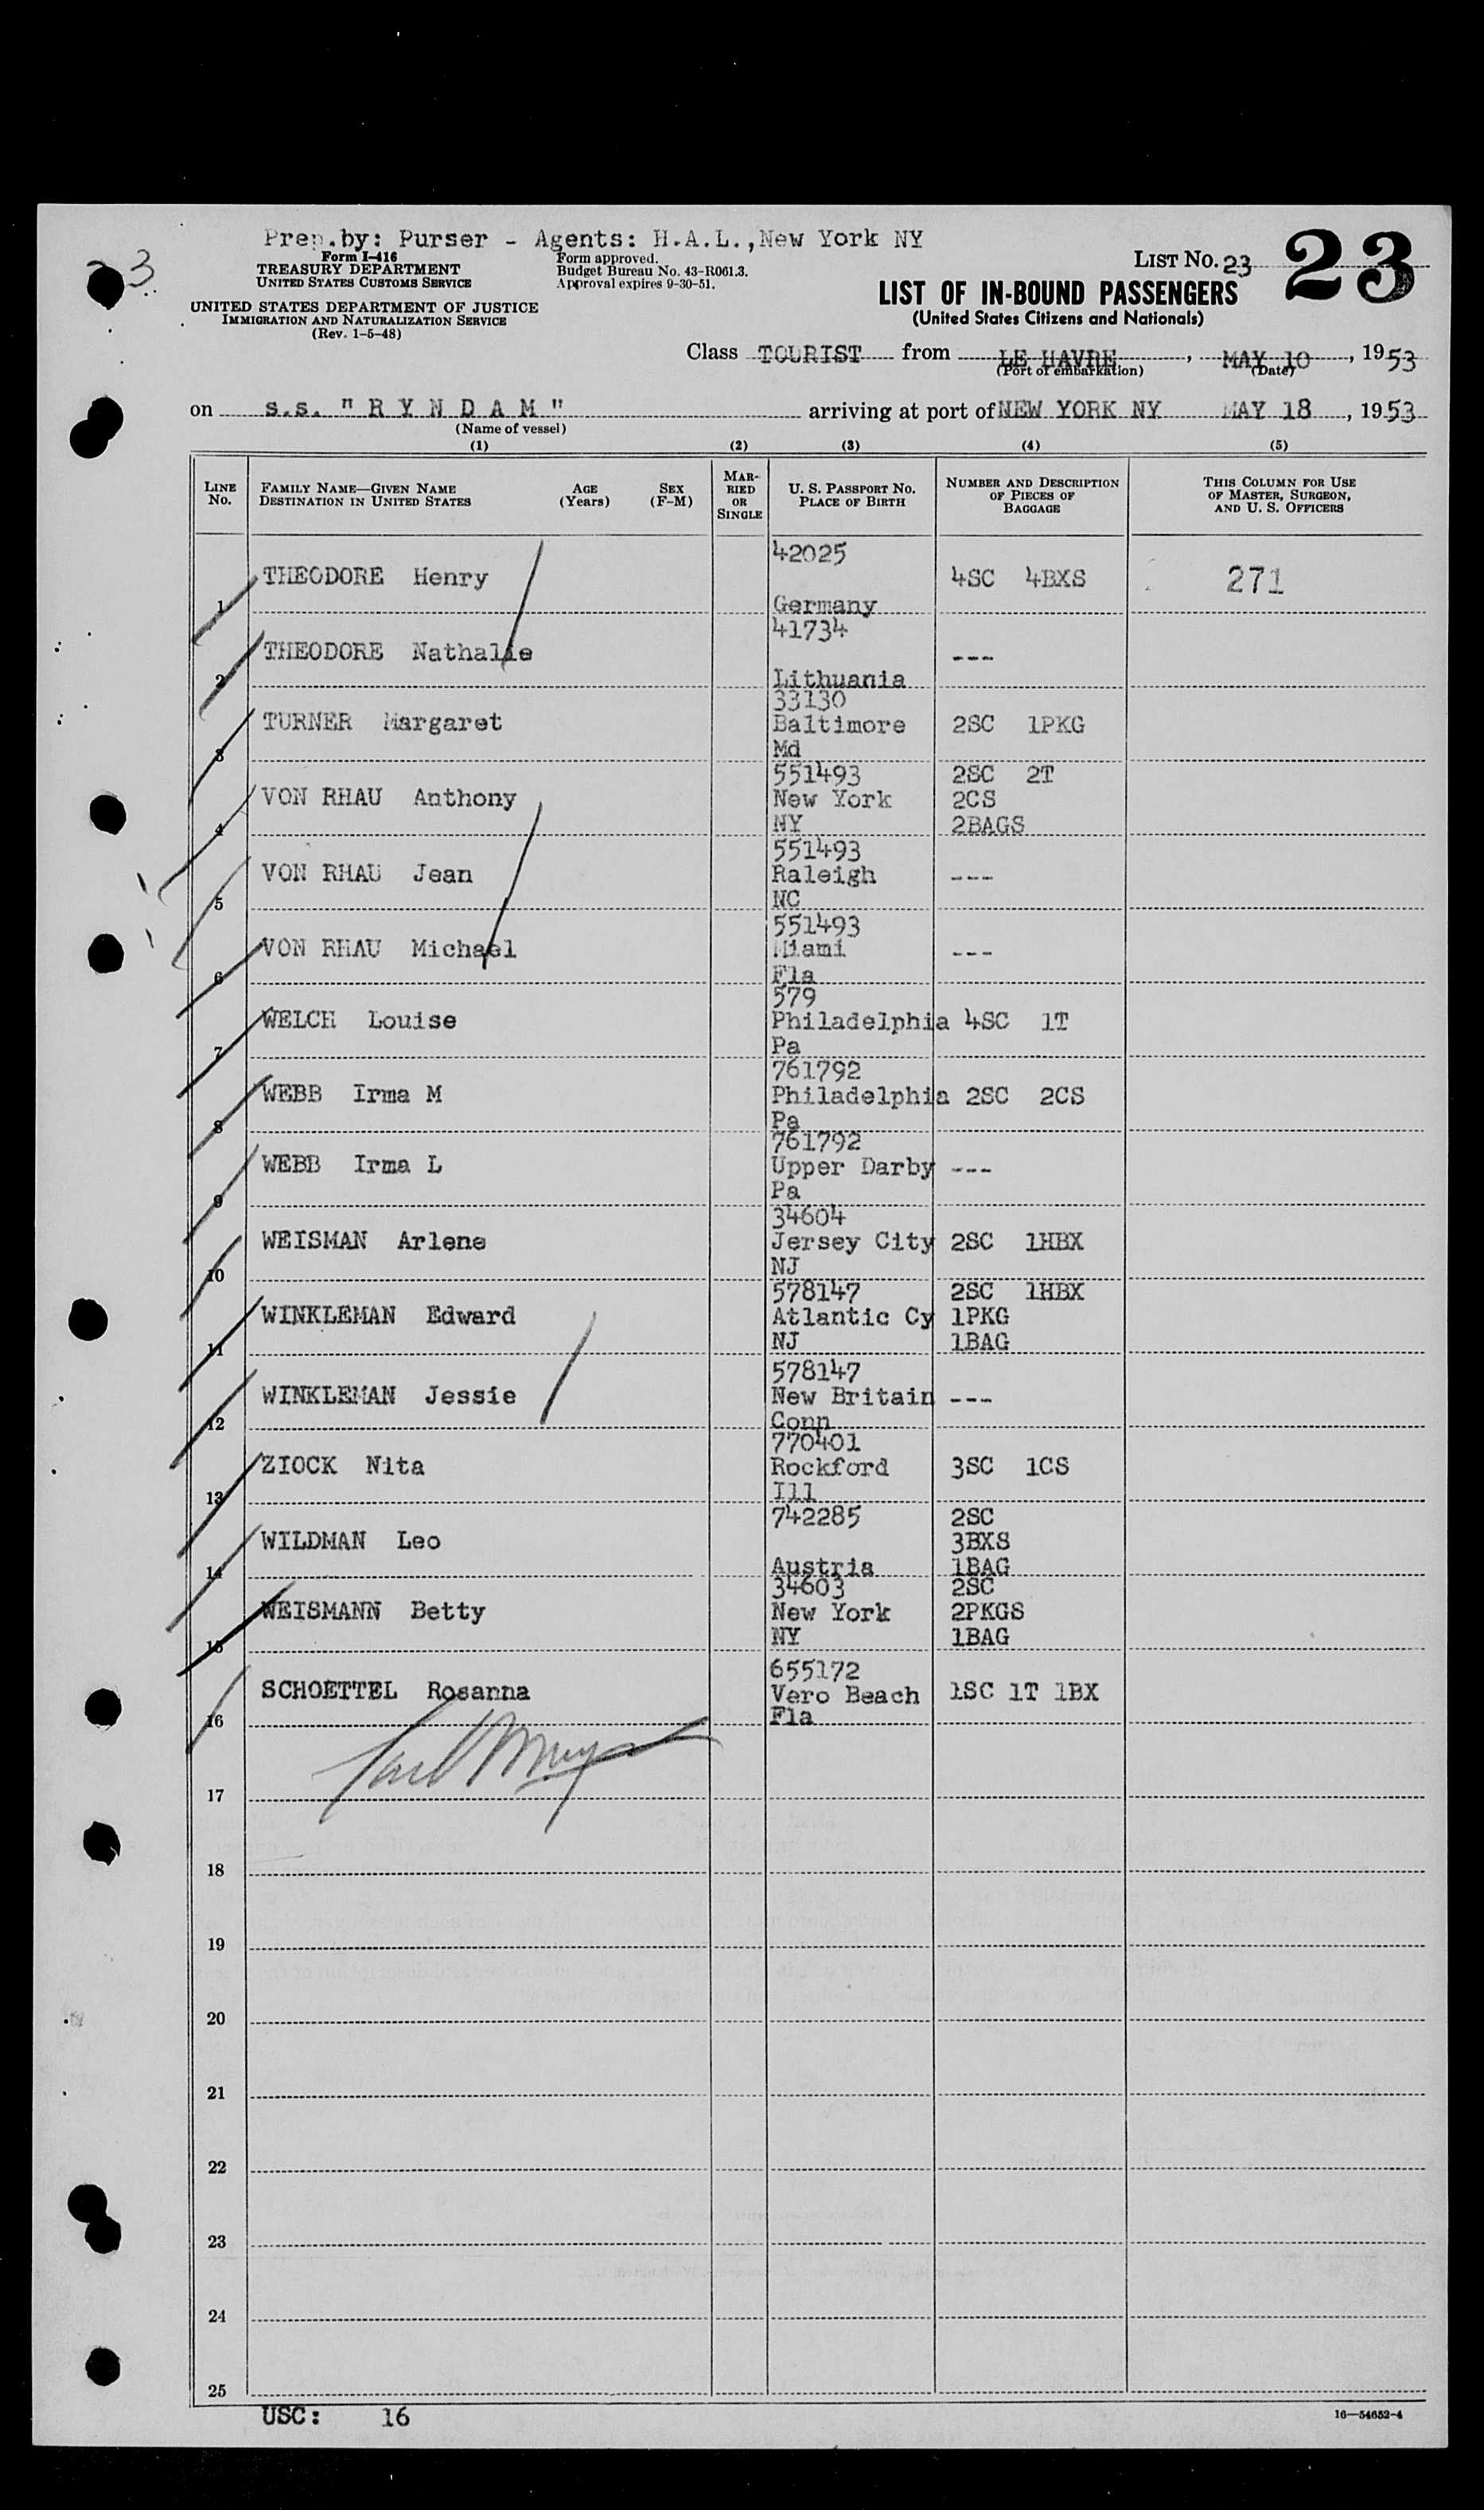 Prep.by: Purser - Agents: H.A.L.,New York NY
Form I-416
TREASURY DEPARTMENT
UNITED STATES CUSTOMS SERVICE
Form approved.
Budget Bureau No. 43-R061.3.
Approval expires 9-30-51.
LIST No. 23
23
UNITED STATES DEPARTMENT OF JUSTICE
IMMIGRATION AND NATURALIZATION SERVICE
(Rev. 1-5-48)
LIST OF IN-BOUND PASSENGERS
(United States Citizens and Nationals)
Class TOURIST from LE HAVRE, MAY 10, 1953
(Port of embarkation) (Date)
on s.s. "RYNDAM" arriving at port of NEW YORK NY MAY 18, 1953
(Name of vessel)
(1) (2) (3) (4) (5)
LINE No.
FAMILY NAME—GIVEN NAME
DESTINATION IN UNITED STATES
AGE (Years)
SEX (F-M)
MARRIED OR SINGLE
U. S. PASSPORT NO.
PLACE OF BIRTH
NUMBER AND DESCRIPTION OF PIECES OF BAGGAGE
THIS COLUMN FOR USE OF MASTER, SURGEON, AND U. S. OFFICERS
1 THEODORE Henry 42025 Germany 4SC 4BXS 271
2 THEODORE Nathalie 41734 Lithuania ---
3 TURNER Margaret 33130 Baltimore Md 2SC 1PKG
4 VON RHAU Anthony 551493 New York NY 2SC 2T 2CS 2BAGS
5 VON RHAU Jean 551493 Raleigh NC ---
6 VON RHAU Michael 551493 Miami Fla ---
7 WELCH Louise 579 Philadelphia Pa 4SC 1T
8 WEBB Irma M 761792 Philadelphia Pa 2SC 2CS
9 WEBB Irma L 761792 Upper Darby Pa ---
10 WEISMAN Arlene 34604 Jersey City NJ 2SC 1HBX
11 WINKLEMAN Edward 578147 Atlantic Cy NJ 2SC 1HBX 1PKG 1BAG
12 WINKLEMAN Jessie 578147 New Britain Conn ---
13 ZIOCK Nita 770401 Rockford Ill 3SC 1CS
14 WILDMAN Leo 742285 Austria 2SC 3BXS 1BAG
15 WEISMANN Betty 34603 New York NY 2SC 2PKGS 1BAG
16 SCHOETTEL Rosanna 655172 Vero Beach Fla 1SC 1T 1BX
17
18
19
20
21
22
23
24
25
USC: 16
16—54652-4